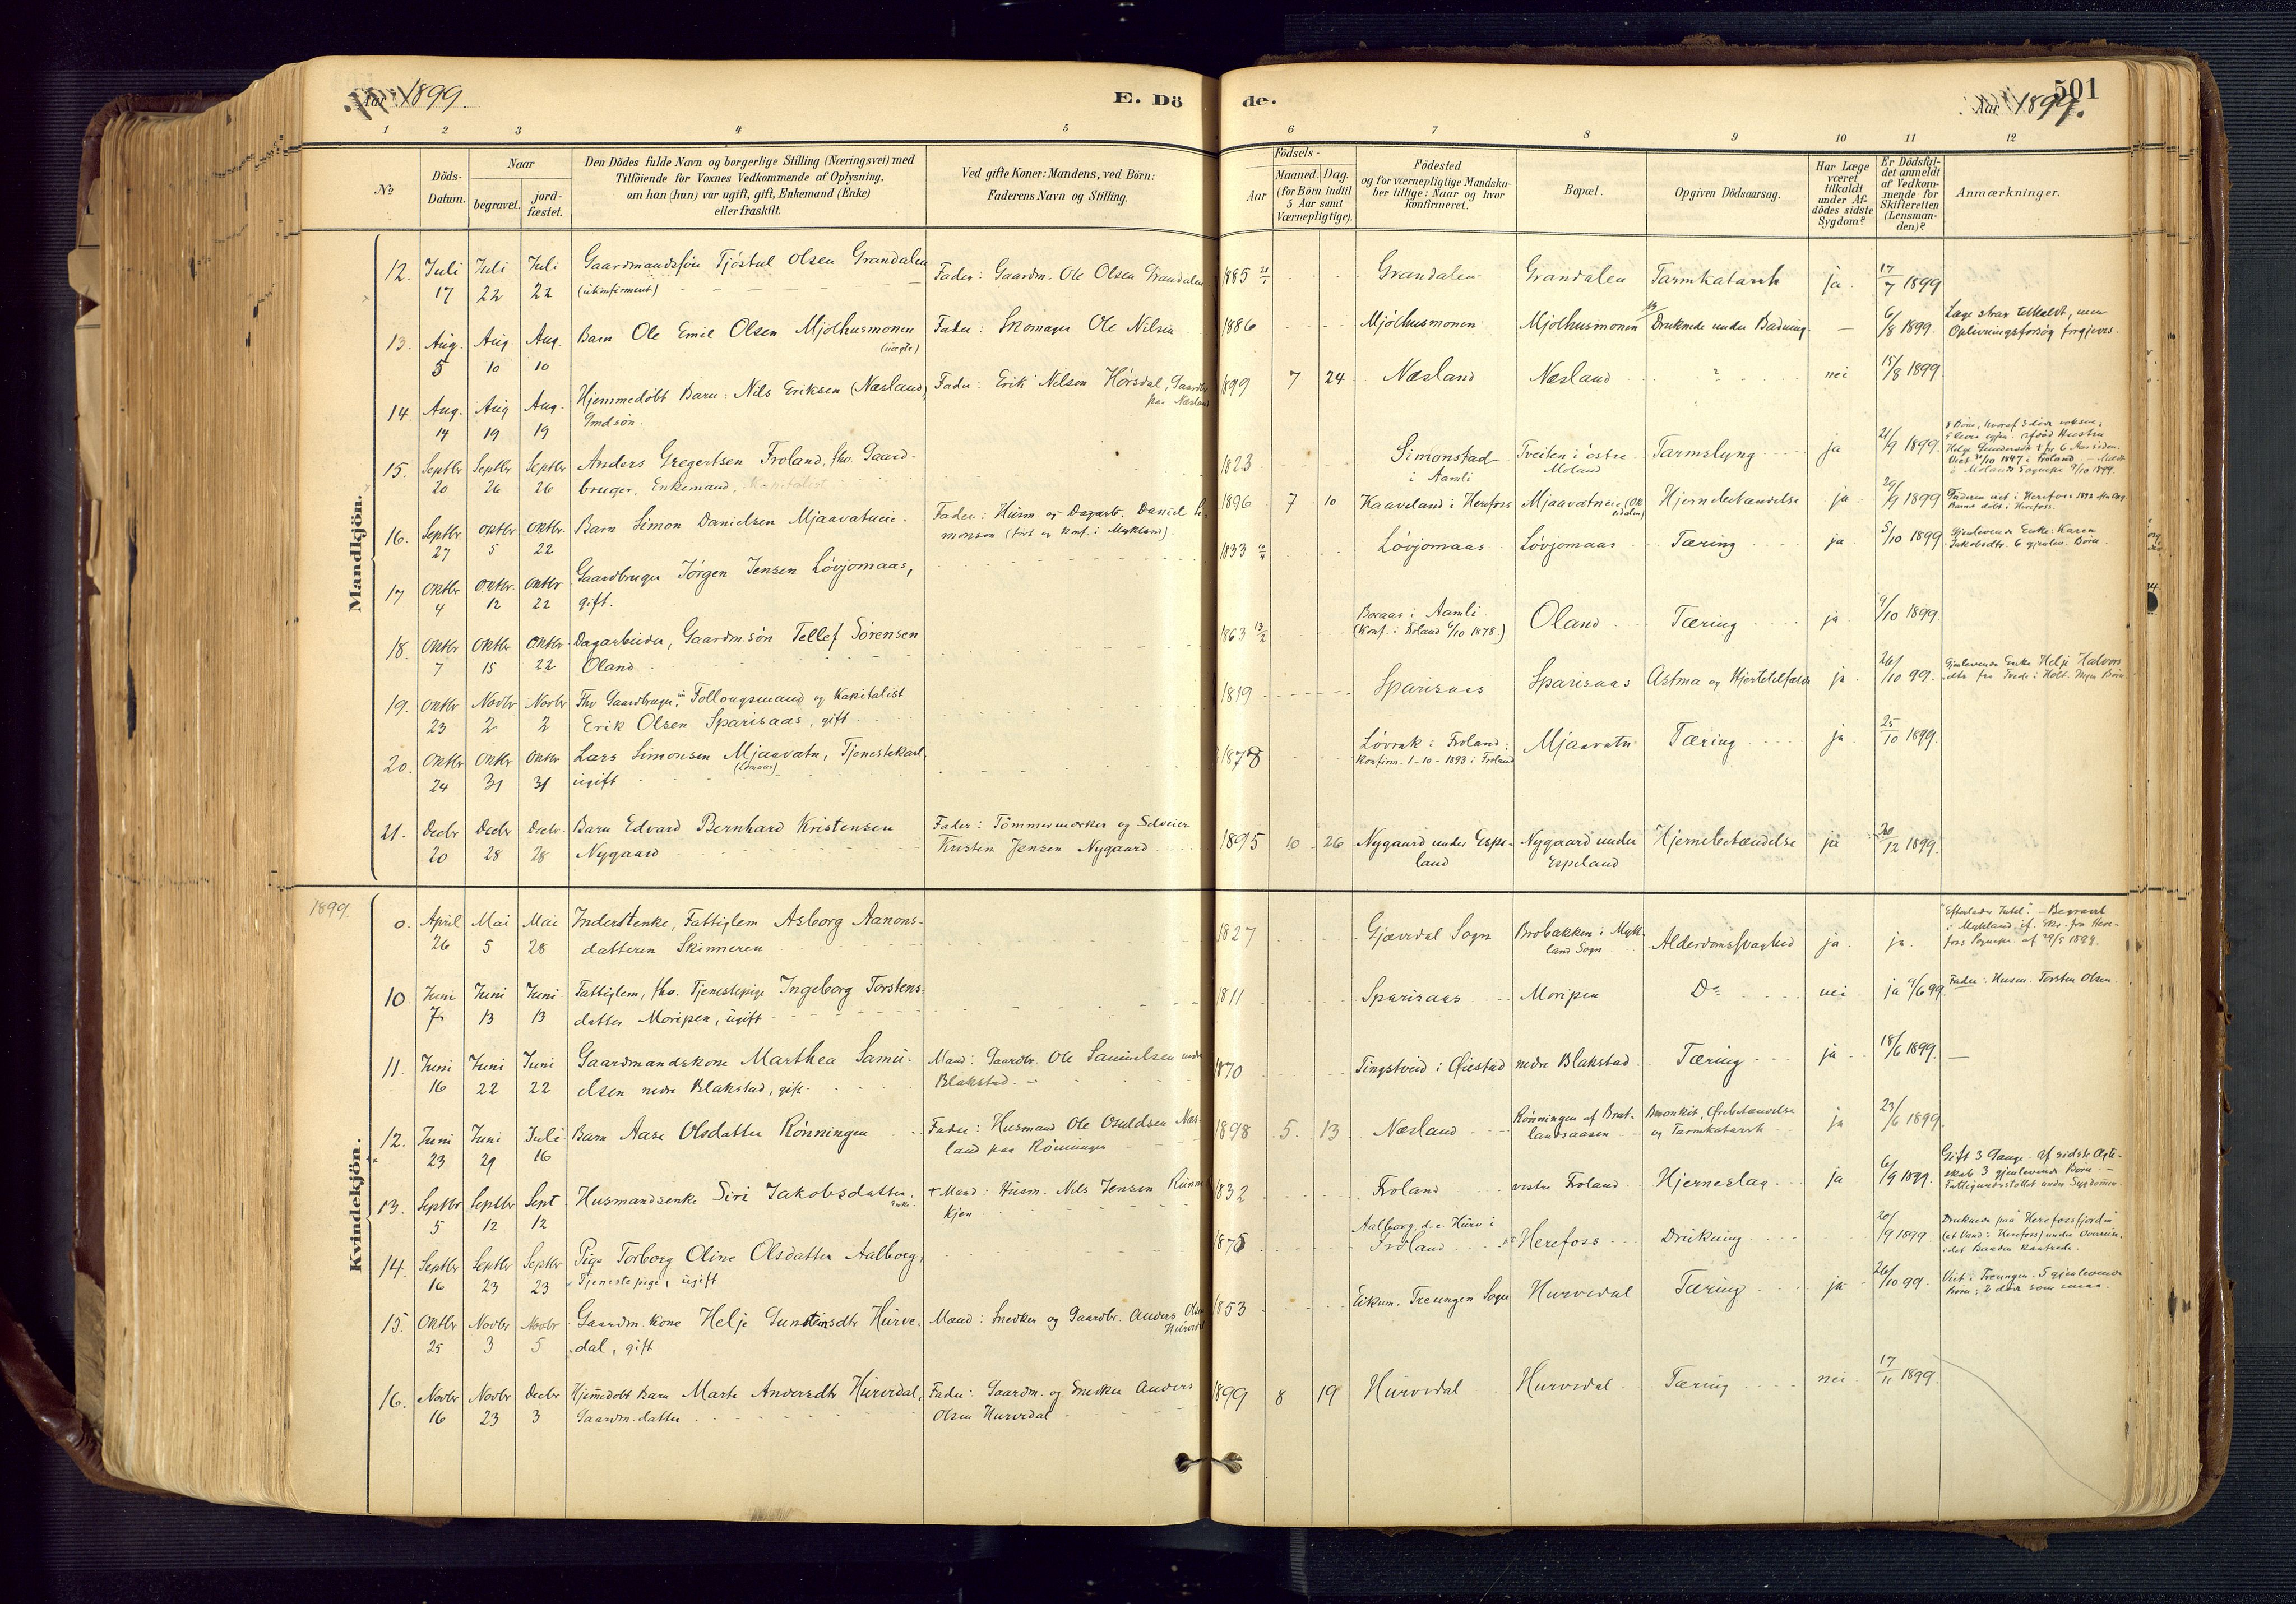 Aar 1899.
E. Dö
de.
501
Aar 1899.
1 2 3 4 5 6 7 8 9 10 11 12
No
Döds-
Datum.
Naar
begravet.
jord-
fæstet.
Den Dödes fulde Navn og borgerlige Stilling (Næringsvei) med
Tilföiende for Voxnes Vedkommende af Oplysning,
om han (hun) var ugift, gift, Enkemand (Enke)
eller fraskilt.
Ved gifte Koner: Mandens, ved Börn:
Faderens Navn og Stilling.
Födsels-
Aar
Maaned. Dag.
(for Börn indtil
5 Aar samt
Værnepligtige).
Födested
og for værnepligtige Mandska-
ber tillige: Naar og hvor
konfirmeret.
Bopæl.
Opgiven Dödsaarsag.
Har Læge
været
tilkaldt
under Af-
dödes sidste
Sygdom?
Er Dödsfal-
det anmeldt
af Vedkom-
mende for
Skifteretten
(Lensman-
den)?
Anmærkninger.
Mandkjön.
12. Juli Juli Juli Gaardmandssön Tjöstul Olsen Grandalen Fader: Gaardm. Ole Olsen Grandalen 1885 21/1 Grandalen Grandalen Tarmkatarrh ja. 17/7 1899
17 22 22 (ukonfirmert)
13. Aug. Aug. Aug. Barn Ole Emil Olsen Mjölhusmonen Fader: Skomager Ole Nilsen 1886 Mjölhusmonen Mjölhusmonen Druknede under Badning — 6/8 1899. Læge strax tilkaldt, men
5 10 10 (uægte) Oplivningsforsög forgjeves.
14. Aug. Aug Aug. Hjemmedöbt Barn: Nils Eriksen (Næsland) Fader: Erik Nilsen Hörsdal, Gaardbr. 1899 7 24 Næsland Næsland ? nei 15/8 1899
14 19 19 Gmdsön. paa Næsland
15. Septbr Septbr Septbr Anders Gregertsen Froland, fhv. Gaard- 1823 Simonstad Tveiten i östre Tarmslyng ja 21/9 1899.
20 26 26 bruger, Enkemand, Kapitalist i Aamli Moland
16. Septbr. Oktbr. Oktbr. Barn Simon Danielsen Mjaavatneie. Fader: Husm. og Dagarb. Daniel Si- 1896 7 10 Kaaveland i Herefoss Mjaavatneie Hjernebetændelse ja 29/9 1899
27 5 22 monsen (födt og konf. i Mykland)
17 Oktbr Oktbr. Oktbr Gaardbruger Jörgen Jensen Lövjomaas, 1833 Lövjomaas Lövjomaas Tæring ja. 5/10 1899 Gjenlevende Enke: Karen
4 12 22 gift. Jakobsdtr. 6 gjenlev. Börn.
18. Oktbr Oktbr Oktbr Dagarbeider, Gaardm.sön Tellef Sörensen 1863 13/2 Boraas i Aamli Oland Tæring ja 9/10 1899.
7 15 22 Oland (Konf. i Froland 6/10 1878.)
19. Oktbr Novbr Novbr Fhv Gaardbruger, Follougsmand og Kapitalist 1819 Sparisaas Sparisaas Astma og Hjertetilfælde ja 26/10 99. Gjenlevende Enke Helje Halvors-
23 2 2 Erik Olsen Sparisaas, gift dtr fra Trede i Holt. Ingen Börn
20. Oktbr Oktbr Oktbr Lars Simonsen Mjaavatn, Tjenestekarl, 1878 Lövrak i Froland: Mjaavatn Tæring ja 25/10 1899.
24 31 31 ugift Konfirm. 1-10-1893 i Froland
21. Decbr Decbr Decbr. Barn Edvard Bernhard Kristensen Fader: Tömmermærker og Selveier 1895 10 26 Nygaard under Espe- Nygaard under Hjernebetændelse ja 20/12 1899.
20 28 28 Nygaard Kristen Jensen Nygaard land Espeland
Kvindekjön.
1899.
April Mai Mai Inderstenke, Fattiglem Asborg Aanons- 1827 Gjævedal Sogn Brobakken i Myk- Alderdomssvaghed ja. ja. "Efterlader Intet". - Begravet
26 5 28 datteren Skinneren land Sogn i Mykland if. Skr. fra Here-
foss Sognepr. af 29/5 1899.
10 Juni Juni Juni Fattiglem, fhv. Tjenestepige Ingeborg Torstens- 1811 Sparisaas Moripen Do nei ja 9/6 99. Fader: Husm. Torsten Olsen.
7 13 13 datter Moripen, ugift
11. Juni Juni Juni Gaardmandskone Marthea Samu- Mand: Gaardbr. Ole Samuelsen nedre 1870 Tingstveid i Öiestad nedre Blakstad Tæring ja 18/6 1899. —
16 22 22 elsen nedre Blakstad, gift Blakstad.
12. Juni Juni Juli Barn Aase Olsdatter Rönningen Fader: Husmand Ole Osuldsen Næs- 1898 5 13 Næsland Rönningen af Brat- Bronkit, Örebetændelse ja 23/6 1899
23 29 16 land paa Rönningen landsaasen og Tarmkatarrh
13. Septbr Septbr Sept Husmandsenke Siri Jakobsdatter, Enke. † Mand: Husm. Nils Jensen 1832 Froland vestre Froland Hjerneslag ja 6/9 1899. Gift 3 Gange. Af sidste Ægte-
5 12 12 kjen skab 3 gjenlevende Börn. —
Fattigunderstöttet under Sygdommen.
14. Septbr Septbr Septbr Pige Torborg Oline Olsdatter Aalborg, 1875 Aalborg, d.e. Hurv i Herefoss Drukning 20/9 1899 Druknede paa Herefossfjorden
16 23 23 Tjenestepige, ugift Froland (et Vand i Herefoss)
idet Baaden kantrede.
15. Oktbr Novbr Novbr Gaardm. kone Helje Gunsteinsdtr Hurve- Mand: Snedker og Gaardbr. Anders Olsen 1853 Eikum. Treungen Sogn Hurvedal Tæring ja 26/10 99. Viet i Treungen. 5 gjenlevende
25 3 5 dal, gift Hurvedal Börn; 2 döde som smaa.
16. Novbr Novbr Decbr Hjemmedöbt Barn Marte Andersdtr Hurvedal, Fader: Gaardm. og Snedker Anders 1899 8 19 Hurvedal Hurvedal Tæring nei 17/11 1899.
16 23 3 Gaardm. datter Olsen Hurvedal